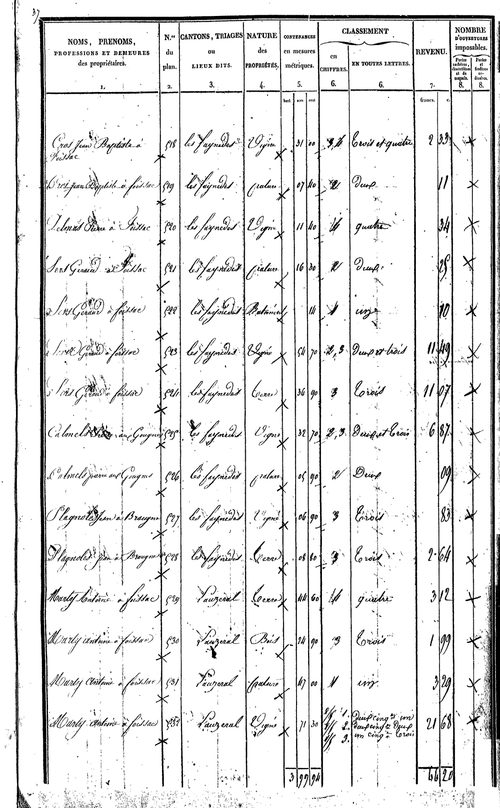 37
NOMS, PRENOMS, PROFESSIONS ET DEMEURES des propriétaires.
N.os du plan.
CANTONS, TRIAGES ou LIEUX DITS.
NATURE des PROPRIÉTÉS.
CONTENANCES en mesures métriques.
CLASSEMENT
en CHIFFRES.
EN TOUTES LETTRES.
REVENU.
NOMBRE D'OUVERTURES imposables.
1. 2. 3. 4. 5. 6. 6. 7. 8. 8.
francs. c.
Cros Jean Baptiste à foissac 518 les faynedes Vigne 31 00 3,4 trois et quatre 2 33
Cros jean Baptiste à foissac 519 les faynedes pature 07 40 2 Deux 11
à foissac 520 les faynedes Vigne 11 40 4 quatre 34
Sers Géraud à foissac 521 les faynedes pature 16 30 2 Deux 25
Sers Géraud à foissac 522 les faynedes Batiment 14 1 un 10
Sers Géraud à foissac 523 les faynedes Vigne 54 70 2,3 Deux et trois 11 49
Sers Géraud à foissac 524 les faynedes terre 36 90 3 trois 11 07
Calmels aux Gougnes 525 les faynedes Vigne 32 70 2,3 Deux et trois 6 87
Calmels aux Gougnes 526 les faynedes pature 05 90 2 Deux 09
jean à 527 les faynedes Vigne 06 90 3 trois 83
jean à 528 les faynedes terre 08 80 3 trois 2 64
Marty Antoine à foissac 529 Lauzeral terre 44 60 4 quatre 3 12
Marty antoine à foissac 530 Lauzeral Bois 24 90 3 trois 1 99
Marty antoine à foissac 531 Lauzeral pature 47 00 1 un 3 29
Marty antoine à foissac 532 Lauzeral Vigne 71 30 21 68
2/5 1. Deux cinq.es un
2/5 2. Deux cinq.es Deux
1/5 3. un cinq.e trois
3 99 94 66 20